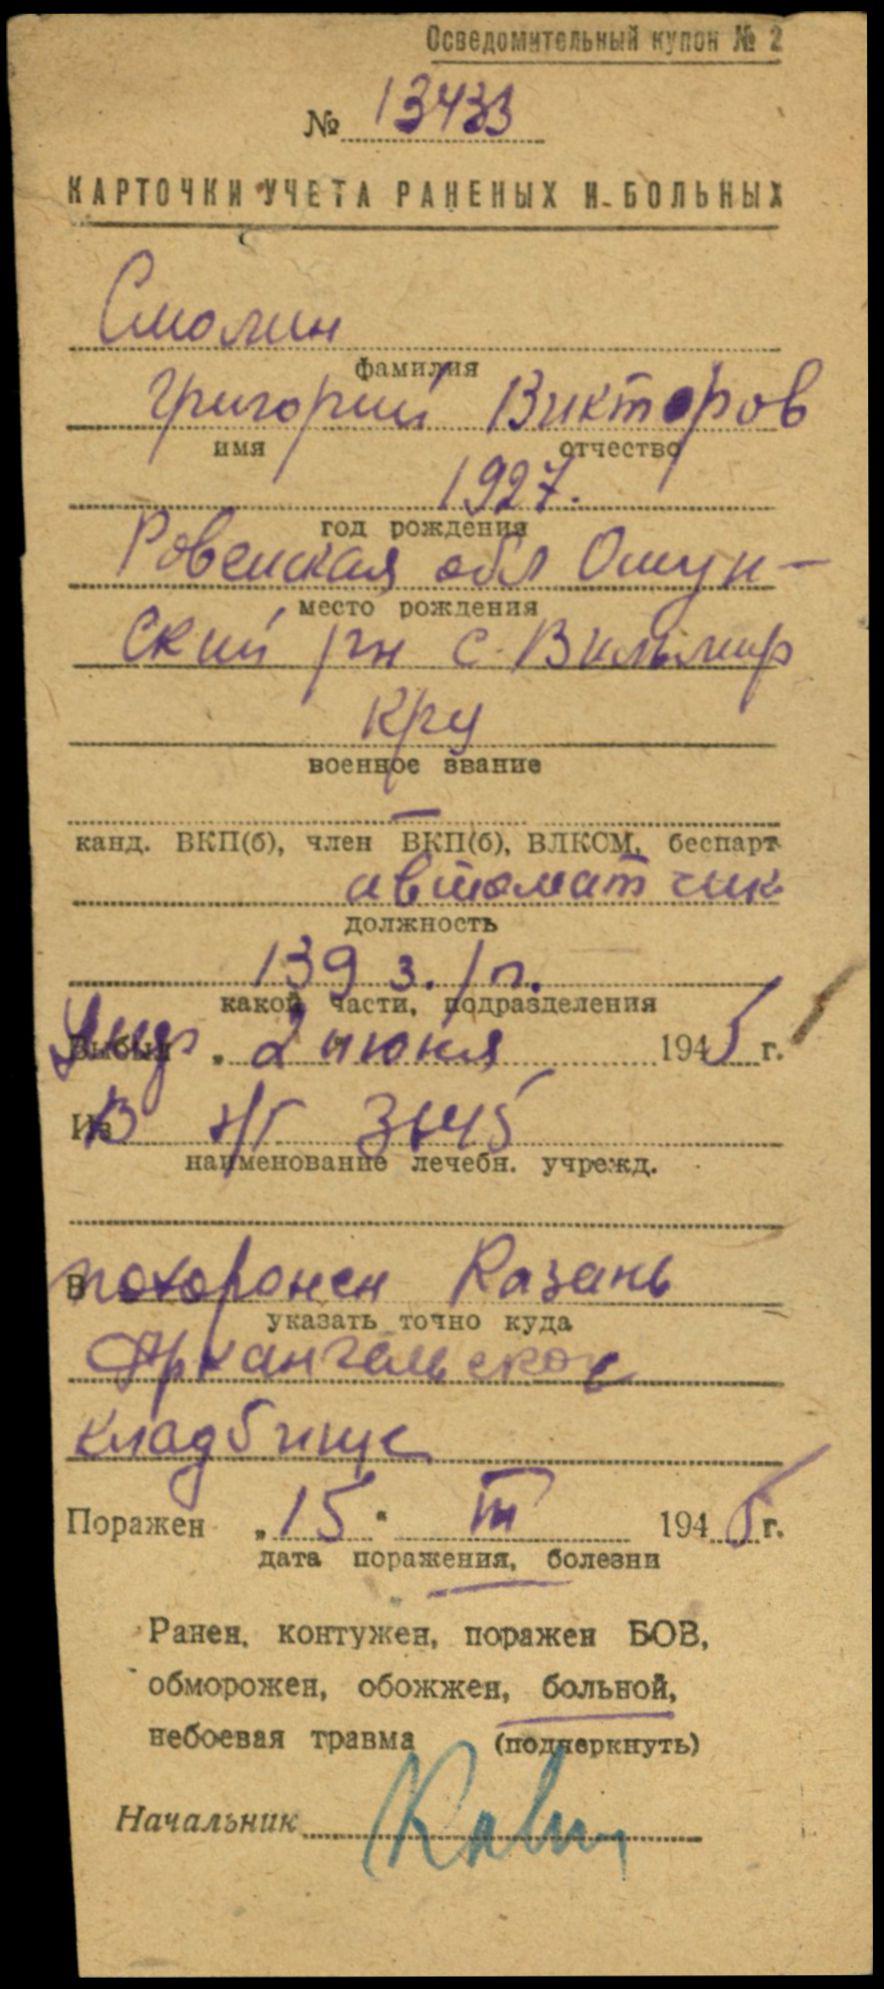 Осведомительный купон № 2
№ 13433
КАРТОЧКИ УЧЕТА РАНЕНЫХ И БОЛЬНЫХ
Смолин
фамилия
Григорий Викторов
имя отчество
1927.
год рождения
Ровенская обл Ошун-
место рождения
ский рн с. Вильмир
кр-ц
военное звание
—
канд. ВКП(б), член ВКП(б), ВЛКСМ, беспарт
автоматчик
должность
139 з./п.
какой части, подразделения
Выбыл Умер „ 2 " июня 1945 г.
Из В э/г 3645
наименование лечебн. учрежд.
В похоронен Казань
указать точно куда
Архангельское
кладбище
Поражен „ 15 " III 1945 г.
дата поражения, болезни
Ранен, контужен, поражен БОВ,
обморожен, обожжен, больной,
небоевая травма (подчеркнуть)
Начальник